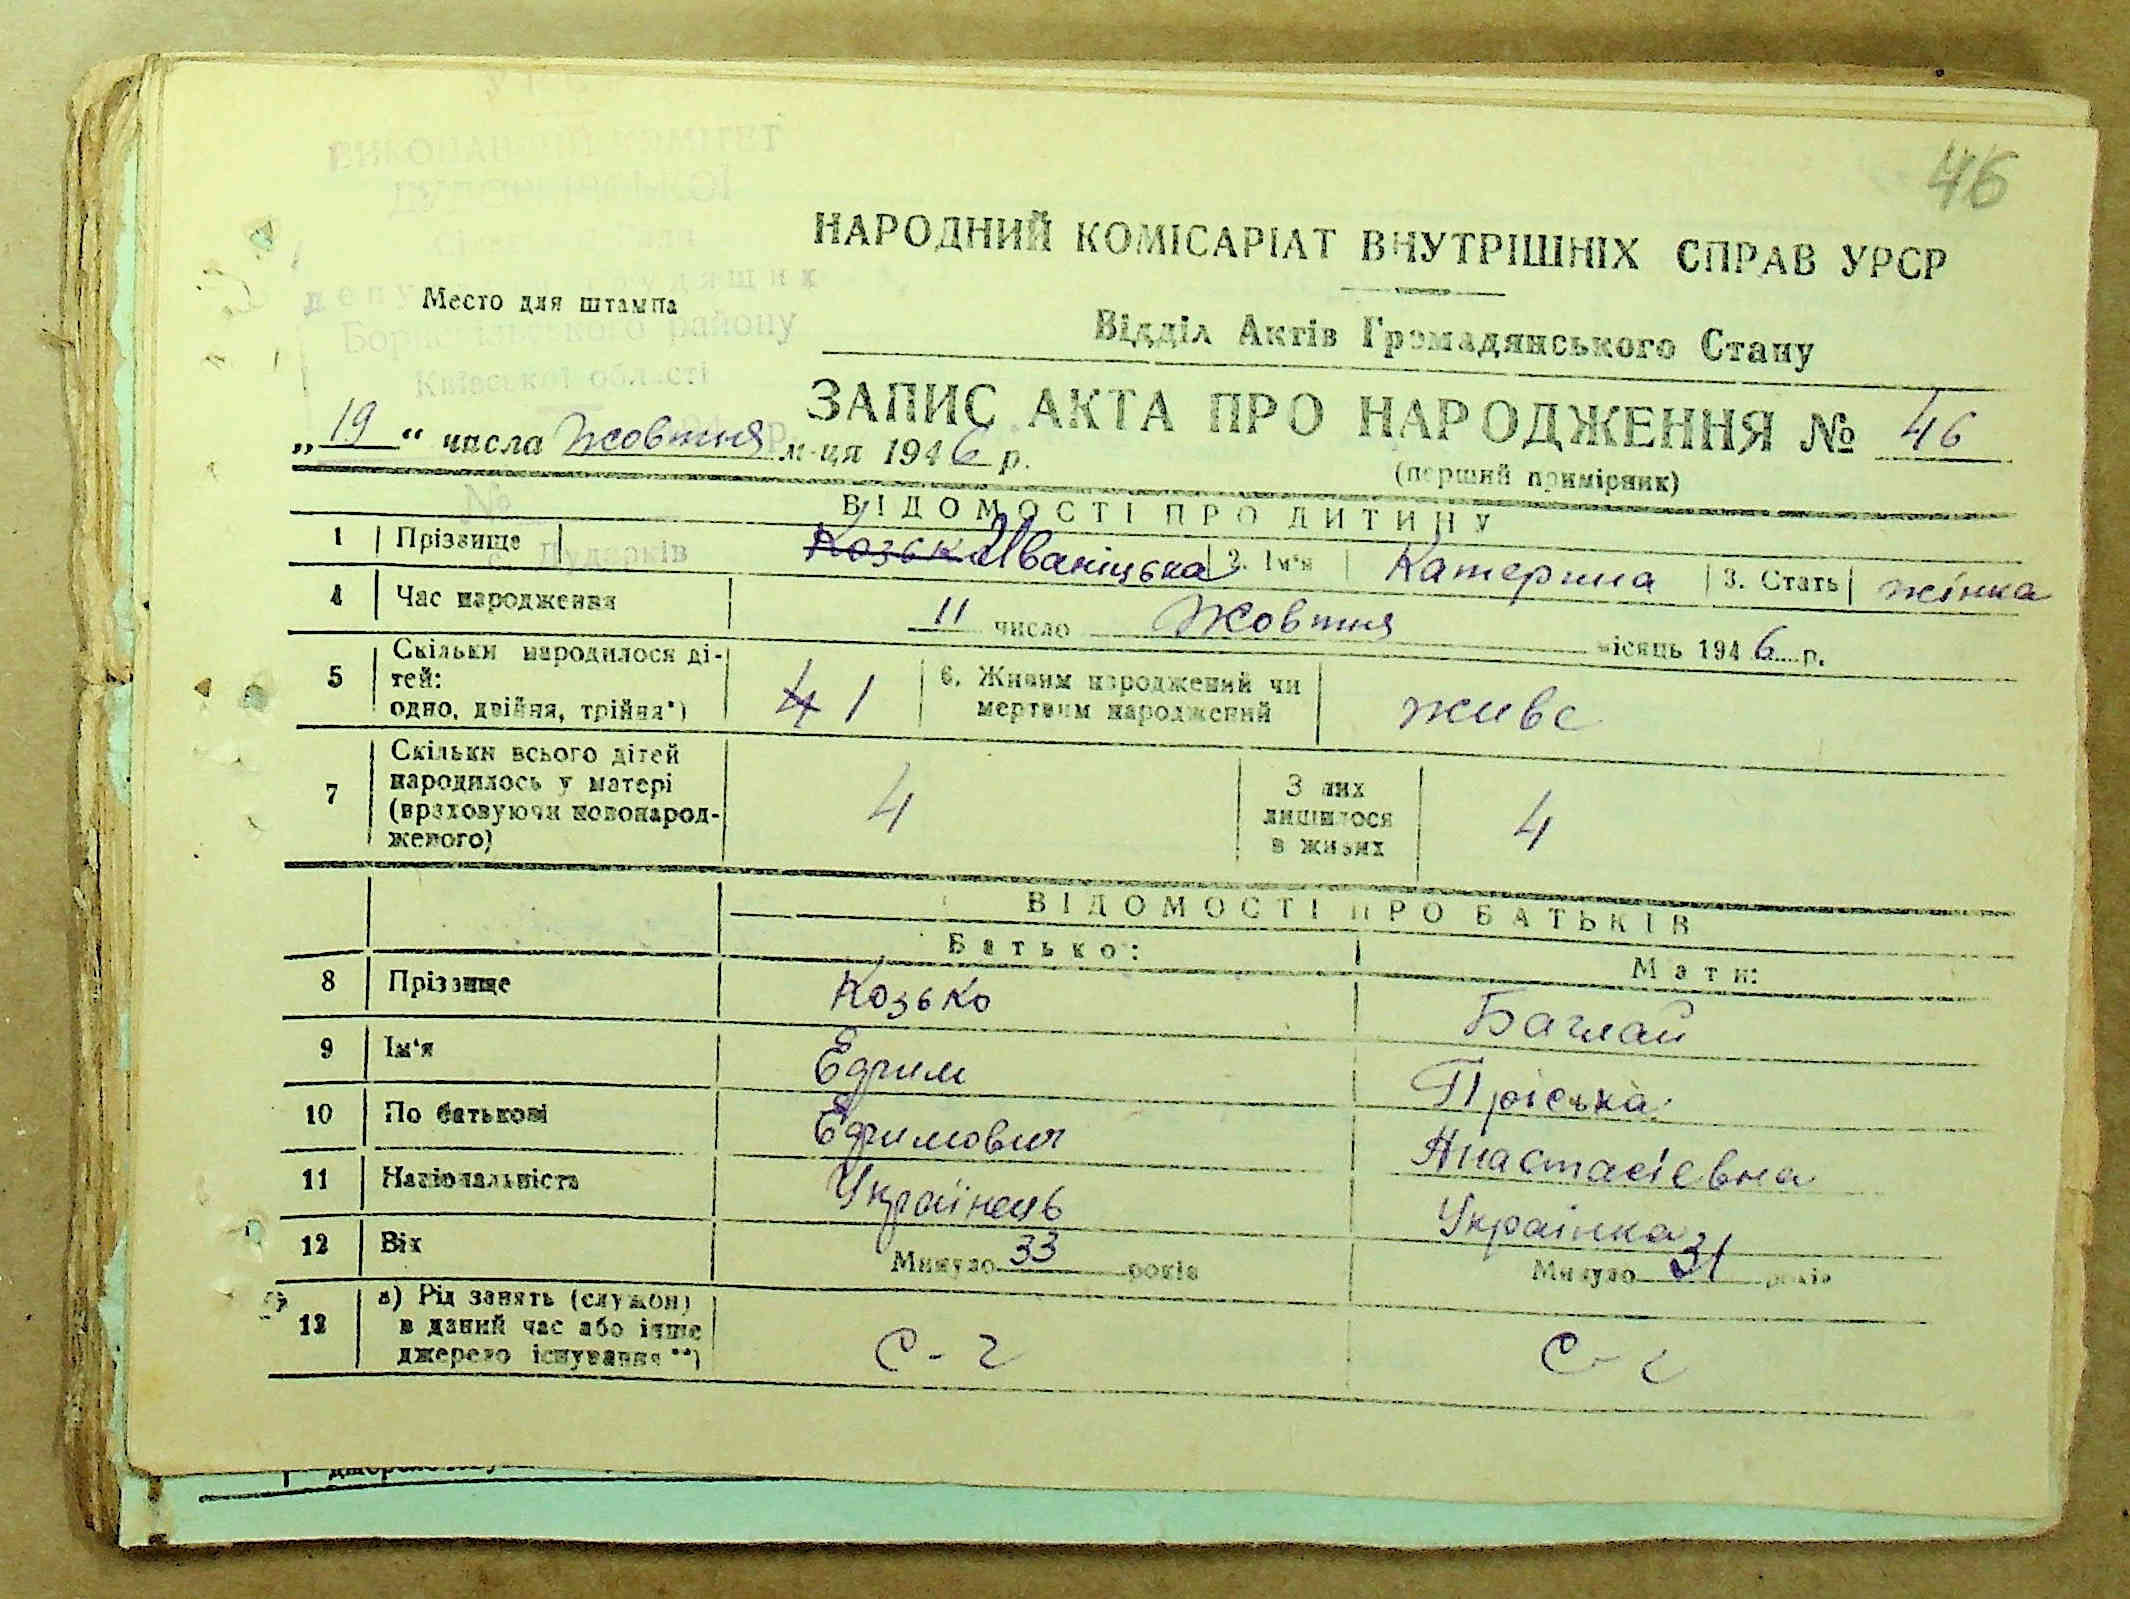 46
НАРОДНИЙ КОМІСАРІАТ ВНУТРІШНІХ СПРАВ УРСР
Место для штампа
Відділ Актів Громадянського Стану
ВИКОНАВЧИЙ КОМІТЕТ
Бориспільського району
Київської області
с. Дударків
ЗАПИС АКТА ПРО НАРОДЖЕННЯ № 46
„19“ числа Жовтня м-ця 1946 р.
(перший примірник)
ВІДОМОСТІ ПРО ДИТИНУ
1 Прізвище Козько Іваніцька 2. Ім'я Катерина 3. Стать жінка
4 Час народження 11 число Жовтня місяць 1946 р.
5 Скільки народилося ді-
тей:
одно, двійня, трійня*) 4 1
6. Живим народжений чи
мертвим народжений живе
7 Скільки всього дітей
народилось у матері
(враховуючи новонарод-
женого) 4
З них
лишилося
в живих 4
ВІДОМОСТІ ПРО БАТЬКІВ
Батько: Мати:
8 Прізвище Козько Баглай
9 Ім'я Ефим Пріська
10 По батькові Ефимович Анастасієвна
11 Національність Українець Українка
12 Вік Минуло 33 років Минуло 31 років
13 а) Рід занять (служби)
в даний час або інше
джерело існування**) с-г с-г